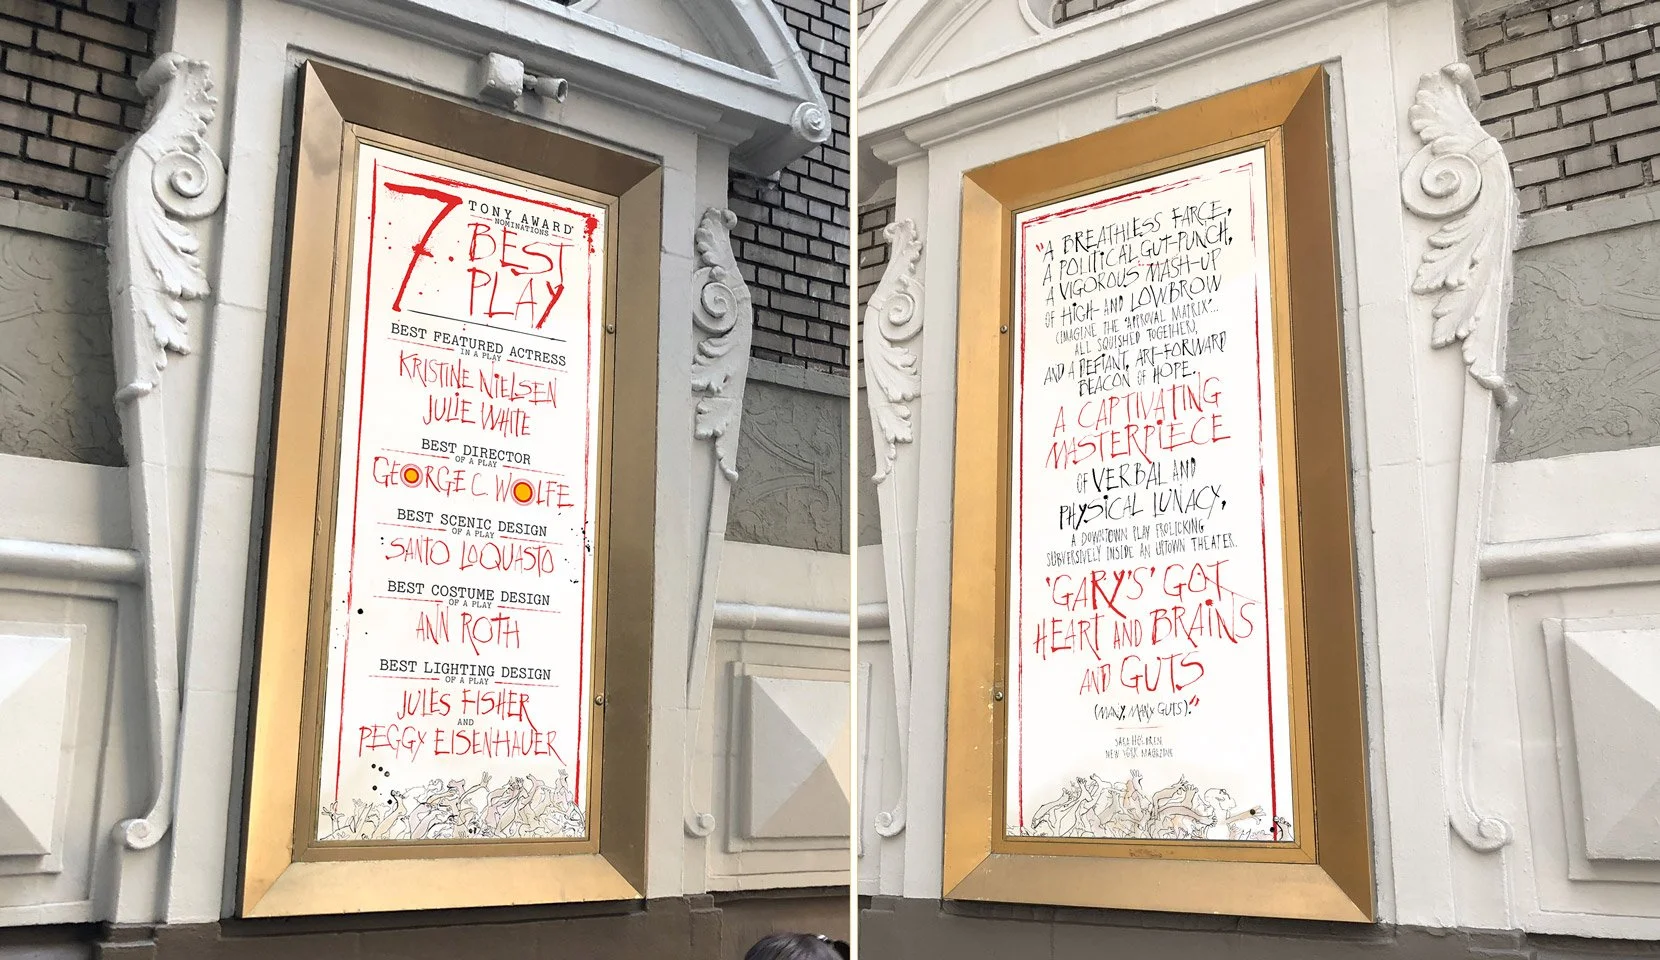 7
TONY AWARD®
NOMINATIONS
BEST
PLAY
BEST FEATURED ACTRESS
IN A PLAY
KRISTINE NIELSEN
JULIE WHITE
BEST DIRECTOR
OF A PLAY
GEORGE C. WOLFE
BEST SCENIC DESIGN
OF A PLAY
SANTO LOQUASTO
BEST COSTUME DESIGN
OF A PLAY
ANN ROTH
BEST LIGHTING DESIGN
OF A PLAY
JULES FISHER
AND
PEGGY EISENHAUER
"A BREATHLESS FARCE,
A POLITICAL GUT-PUNCH,
A VIGOROUS MASH-UP
OF HIGH- AND LOWBROW
(IMAGINE THE 'APPROVAL MATRIX'...
ALL SQUISHED TOGETHER),
AND A DEFIANT, ART-FORWARD
BEACON OF HOPE.
A CAPTIVATING
MASTERPIECE
OF VERBAL AND
PHYSICAL LUNACY,
A DOWNTOWN PLAY FROLICKING
SUBVERSIVELY INSIDE AN UPTOWN THEATER.
'GARY'S' GOT
HEART AND BRAINS
AND GUTS
(MANY, MANY GUTS)."
SARA HOLDREN
NEW YORK MAGAZINE